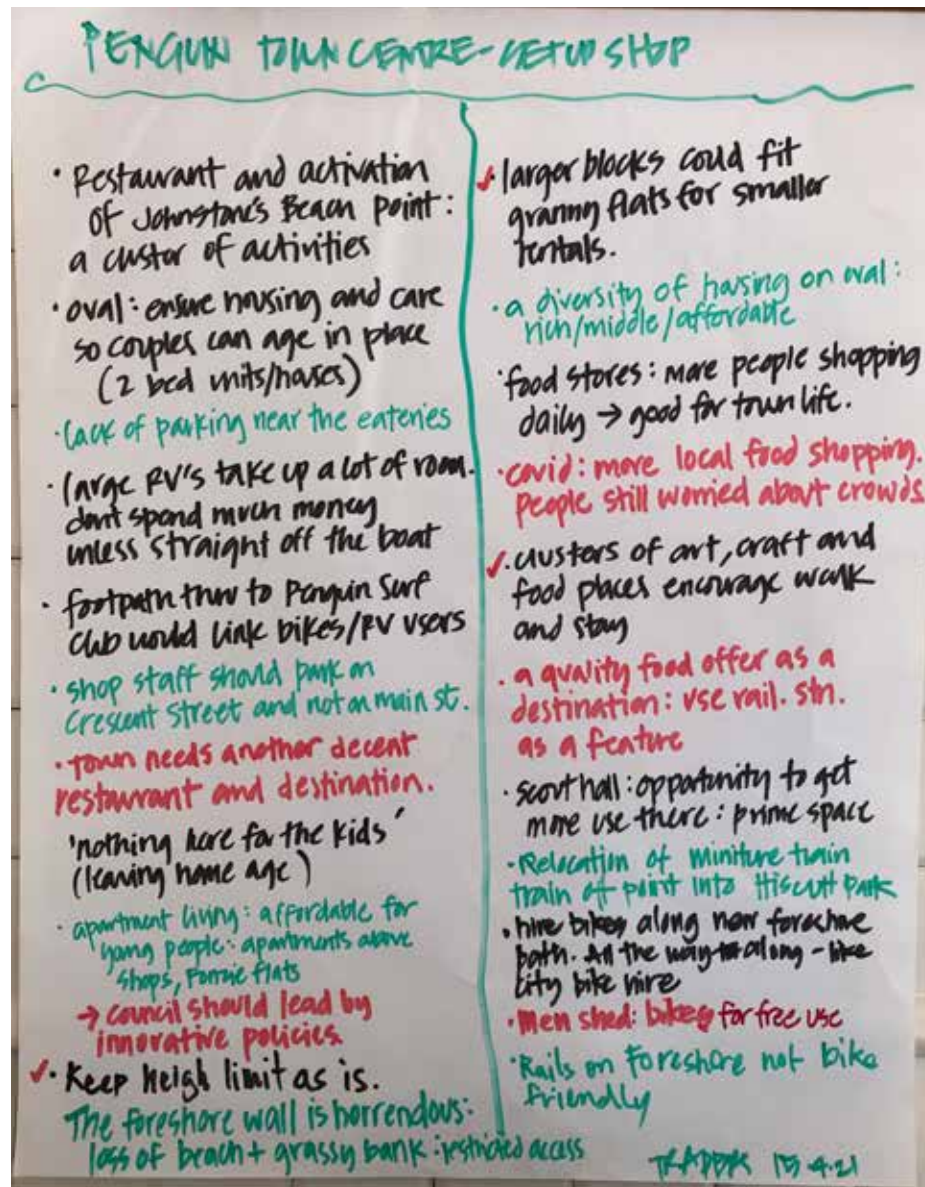 PENGUIN TOWN CENTRE - SETUP SHOP
· Restaurant and activation
of Johnstone's Beach point:
a custor of activities
· oval: ensure housing and care
so couples can age in place
(2 bed units/houses)
· lack of parking near the eateries
· large RV's take up a lot of room.
dont spend much money
unless straight off the boat
· footpath thru to Penguin Surf
Club would link bikes/RV users
· shop staff should park on
Crescent Street and not on main st.
· town needs another decent
restaurant and destination.
'nothing here for the kids'
(leaving home age)
· apartment living: affordable for
young people: apartments above
shops, Fonzie flats
→ council should lead by
innovative policies.
✓· Keep heigh limit as is.
The foreshore wall is horrendous:
loss of beach + grassy bank: restricted access
✓· larger blocks could fit
granny flats for smaller
rentals.
· a diversity of housing on oval:
rich/middle/affordable
· food stores: more people shopping
daily → good for town life.
· covid: more local food shopping.
People still worried about crowds
✓· clusters of art, craft and
food places encourage walk
and stay
· a quality food offer as a
destination: use rail. stn.
as a feature
· scout hall: opportunity to get
more use there: prime space
· Relocation of miniture train
train of point into Hiscutt Park
· hire bikes along new foreshore
path. All the way along - like
city bike hire
· Men shed: bikes for free use
· Rails on Foreshore not bike
friendly
4.21